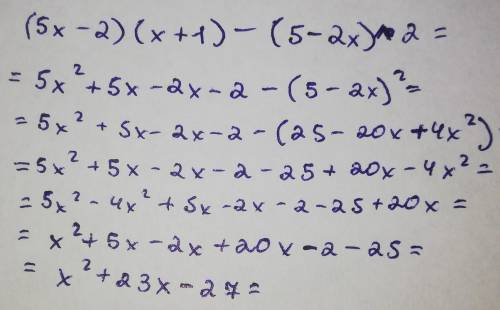 (5x-2)(x+1)-(5-2x)^2=
=5x²+5x-2x-2-(5-2x)²=
=5x²+5x-2x-2-(25-20x+4x²)
=5x²+5x-2x-2-25+20x-4x²=
=5x²-4x²+5x-2x-2-25+20x=
=x²+5x-2x+20x-2-25=
=x²+23x-27=